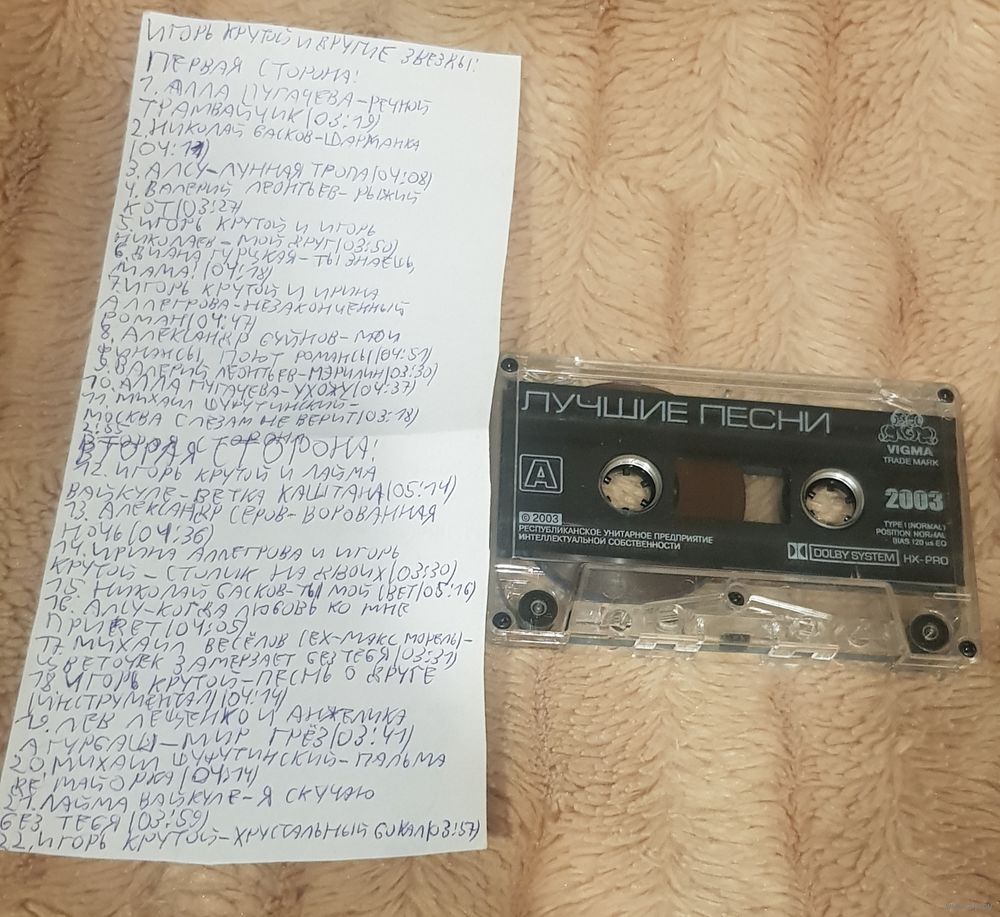 ИГОРЬ КРУТОЙ И ДРУГИЕ ЗВЕЗДЫ!
ПЕРВАЯ СТОРОНА!
1. АЛЛА ПУГАЧЕВА-РЕЧНОЙ
ТРАМВАЙЧИК(03:19)
2. НИКОЛАЙ БАСКОВ-ШАРМАНКА
(04:11)
3. АЛСУ-ЛУННАЯ ТРОПА(04:08)
4. ВАЛЕРИЙ ЛЕОНТЬЕВ-РЫЖИЙ
КОТ(03:27)
5. ИГОРЬ КРУТОЙ И ИГОРЬ
НИКОЛАЕВ-МОЙ ДРУГ(03:50)
6. ДИАНА ГУРЦКАЯ-ТЫ ЗНАЕШЬ,
МАМА!(04:18)
7. ИГОРЬ КРУТОЙ И ИРИНА
АЛЛЕГРОВА-НЕЗАКОНЧЕННЫЙ
РОМАН(04:47)
8. АЛЕКСАНДР БУЙНОВ-МОИ
ФИНАНСЫ ПОЮТ РОМАНСЫ(04:51)
9. ВАЛЕРИЙ ЛЕОНТЬЕВ-МЭРИЛИН(03:30)
10. АЛЛА ПУГАЧЕВА-УХОЖУ(04:37)
11. МИХАИЛ ШУФУТИНСКИЙ-
МОСКВА СЛЕЗАМ НЕ ВЕРИТ(03:18)
ВТОРАЯ СТОРОНА!
12. ИГОРЬ КРУТОЙ И ЛАЙМА
ВАЙКУЛЕ-ВЕТКА КАШТАНА(05:14)
13. АЛЕКСАНДР СЕРОВ-ВОРОВАННАЯ
НОЧЬ(04:36)
14. ИРИНА АЛЛЕГРОВА И ИГОРЬ
КРУТОЙ-СТОЛИК НА ДВОИХ(03:30)
15. НИКОЛАЙ БАСКОВ-ТЫ МОЙ СВЕТ(05:16)
16. АЛСУ-КОГДА ЛЮБОВЬ КО МНЕ
ПРИДЕТ(04:05)
17. МИХАИЛ ВЕСЁЛОВ (EX-МАКС МОРЕЛЬ)-
ЦВЕТОЧЕК ЗАМЕРЗАЕТ БЕЗ ТЕБЯ(03:31)
18. ИГОРЬ КРУТОЙ-ПЕСНЬ О ДРУГЕ
(ИНСТРУМЕНТАЛ)(04:14)
19. ЛЕВ ЛЕЩЕНКО И АНЖЕЛИКА
АГУРБАШ-МИР ГРЁЗ(03:41)
20. МИХАИЛ ШУФУТИНСКИЙ-ПАЛЬМА
ДЕ МАЙОРКА(04:14)
21. ЛАЙМА ВАЙКУЛЕ-Я СКУЧАЮ
БЕЗ ТЕБЯ(03:59)
22. ИГОРЬ КРУТОЙ-ХРУСТАЛЬНЫЙ БОКАЛ(03:57)
ЛУЧШИЕ ПЕСНИ
A
VIGMA
TRADE MARK
2003
© 2003
РЕСПУБЛИКАНСКОЕ УНИТАРНОЕ ПРЕДПРИЯТИЕ
ИНТЕЛЛЕКТУАЛЬНОЙ СОБСТВЕННОСТИ
TYPE I (NORMAL)
POSITION NORMAL
BIAS 120 us EQ
DOLBY SYSTEM HX-PRO